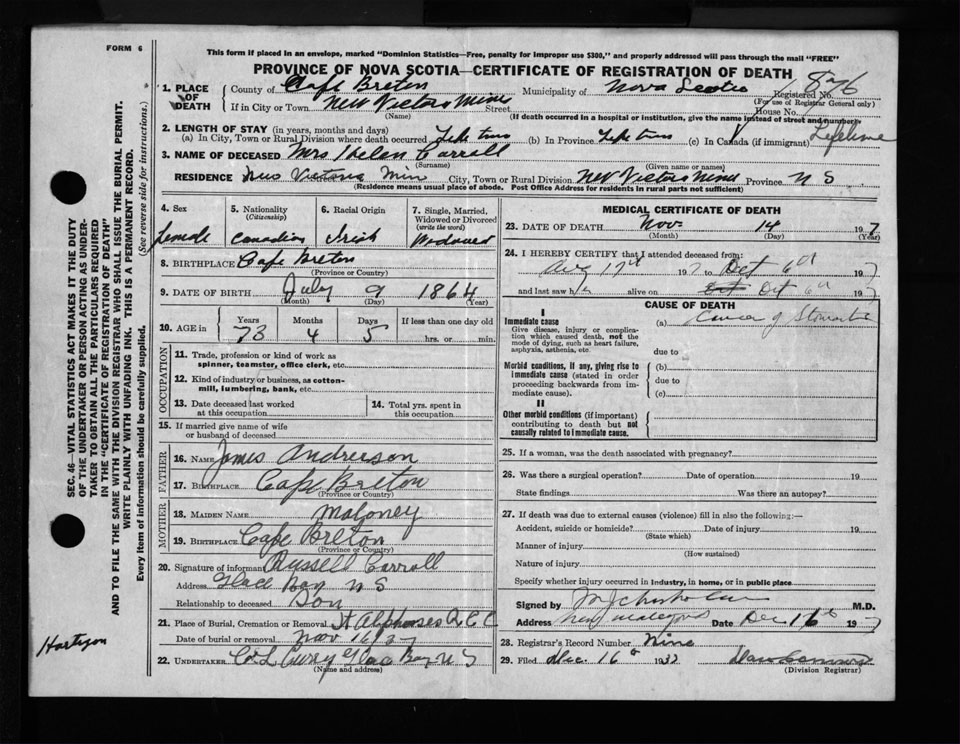 FORM 6
This form if placed in an envelope, marked "Dominion Statistics—Free, penalty for improper use $300," and properly addressed will pass through the mail "FREE"
PROVINCE OF NOVA SCOTIA—CERTIFICATE OF REGISTRATION OF DEATH
1. PLACE OF DEATH
County of Cape Breton Municipality of Nova Scotia Registered No.
(For use of Registrar General only)
If in City or Town New Victoria Mines Street House No.
(Name) (If death occurred in a hospital or institution, give the name instead of street and number)
2. LENGTH OF STAY (in years, months and days)
(a) In City, Town or Rural Division where death occurred Life time (b) In Province Life time (c) In Canada (if immigrant) Lifetime
3. NAME OF DECEASED Mrs Helen Carroll
(Surname) (Given name or names)
RESIDENCE New Victoria Min City, Town or Rural Division New Victoria Mines Province N S
(Residence means usual place of abode. Post Office Address for residents in rural parts not sufficient)
4. Sex
Female
5. Nationality
(Citizenship)
Canadian
6. Racial Origin
Irish
7. Single, Married, Widowed or Divorced
(write the word)
Widowed
8. BIRTHPLACE Cape Breton
(Province or Country)
9. DATE OF BIRTH July 9 1864
(Month) (Day) (Year)
10. AGE in Years Months Days If less than one day old
73 4 5 hrs. or min.
OCCUPATION
11. Trade, profession or kind of work as
spinner, teamster, office clerk, etc.
12. Kind of industry or business, as cotton-
mill, lumbering, bank, etc.
13. Date deceased last worked
at this occupation
14. Total yrs. spent in
this occupation
15. If married give name of wife
or husband of deceased
FATHER
16. NAME James Anderson
17. BIRTHPLACE Cape Breton
(Province or Country)
MOTHER
18. MAIDEN NAME Maloney
19. BIRTHPLACE Cape Breton
(Province or Country)
20. Signature of informant Russell Carroll
Address Glace Bay N S
Relationship to deceased Son
21. Place of Burial, Cremation or Removal St Alphonses R C C
Date of burial or removal Nov 16/37
22. UNDERTAKER Curry Glace Bay N S
(Name and address)
MEDICAL CERTIFICATE OF DEATH
23. DATE OF DEATH Nov 14 1937
(Month) (Day) (Year)
24. I HEREBY CERTIFY that I attended deceased from:
Aug 193 7 to Oct 6th 193 7
and last saw h alive on Oct 6th 193 7
CAUSE OF DEATH
I
Immediate cause
Give disease, injury or complica-
tion which caused death, not the
mode of dying, such as heart failure,
asphyxia, asthenia, etc.
(a) Cancer of Stomach
due to
Morbid conditions, if any, giving rise to
immediate cause (stated in order
proceeding backwards from im-
mediate cause).
(b)
due to
(c)
II
Other morbid conditions (if important)
contributing to death but not
causally related to immediate cause.
25. If a woman, was the death associated with pregnancy?
26. Was there a surgical operation? Date of operation 19
State findings Was there an autopsy?
27. If death was due to external causes (violence) fill in also the following:—
Accident, suicide or homicide? Date of injury 19
(State which)
Manner of injury
(How sustained)
Nature of injury
Specify whether injury occurred in industry, in home, or in public place
Signed by M.D.
Address New Waterford Date Dec 16th 193 7
28. Registrar's Record Number Nine
29. Filed Dec. 16 193
(Division Registrar)
SEC. 46—VITAL STATISTICS ACT MAKES IT THE DUTY
OF THE UNDERTAKER OR PERSON ACTING AS UNDER-
TAKER TO OBTAIN ALL THE PARTICULARS REQUIRED
IN THE "CERTIFICATE OF REGISTRATION OF DEATH"
AND TO FILE THE SAME WITH THE DIVISION REGISTRAR WHO SHALL ISSUE THE BURIAL PERMIT.
WRITE PLAINLY WITH UNFADING INK. THIS IS A PERMANENT RECORD.
Every item of information should be carefully supplied. (See reverse side for instructions.)